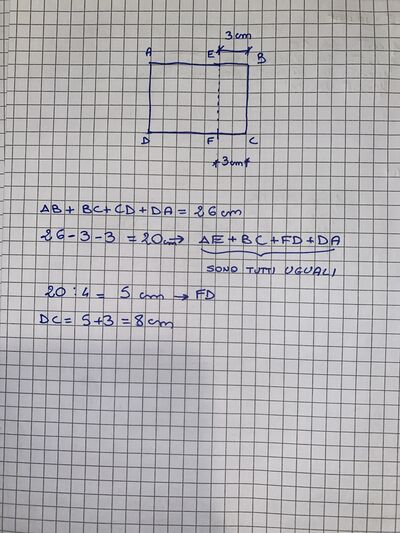 3 cm
A E B
D F C
3 cm
AB + BC + CD + DA = 26 cm
26 - 3 - 3 = 20 cm → AE + BC + FD + DA
SONO TUTTI UGUALI
20 : 4 = 5 cm → FD
DC = 5 + 3 = 8 cm